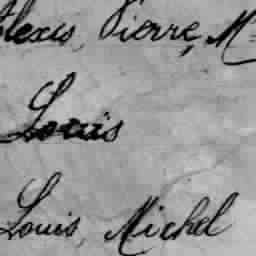 Alexis, Pierre, M
Louis
Louis, Michel